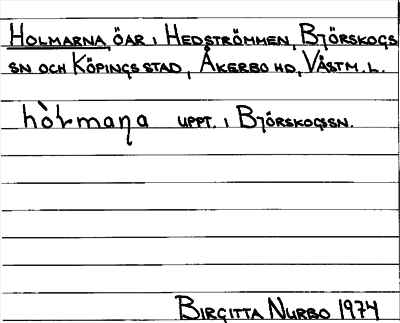 Holmarna, öar i Hedströmmen, Björskogs
sn och Köpings stad, Åkerbo hd, Västm. l.
hòɫmaɳa uppt. i Björskogs sn.
Birgitta Nurbo 1974